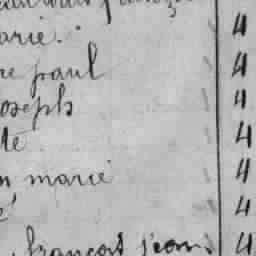 arie. 4
re paul 4
oseph 4
te 4
n marie 4
é 4
françois jean. 4